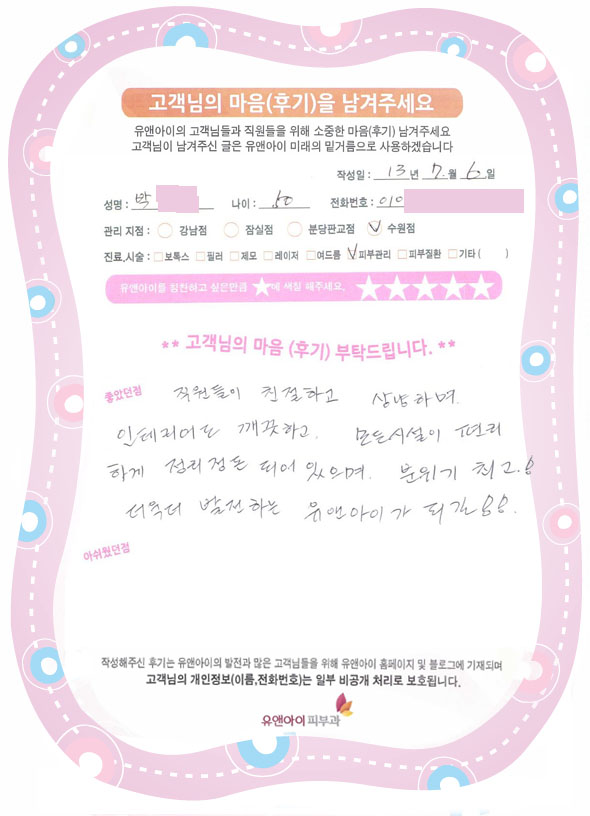 고객님의 마음(후기)을 남겨주세요
유앤아이의 고객님들과 직원들을 위해 소중한 마음(후기) 남겨주세요
고객님이 남겨주신 글은 유앤아이 미래의 밑거름으로 사용하겠습니다
작성일 : 13년 7.월 6일
성명 : 박 나이 : 50 전화번호 : 010
관리 지점 : 강남점 잠실점 분당판교점 수원점
진료,시술 : 보톡스 필러 제모 레이저 여드름 피부관리 피부질환 기타 ( )
유앤아이를 칭찬하고 싶은만큼 ★에 색칠 해주세요. ★★★★★
** 고객님의 마음 (후기) 부탁드립니다. **
좋았던점 직원들이 친절하고 상냥하며.
인테리어도 깨끗하고. 모든시설이 편리
하게 정리정돈 되어 있으며. 분위기 최고.!
더욱더 발전하는 유앤아이가 되길!!.
아쉬웠던점
작성해주신 후기는 유앤아이의 발전과 많은 고객님들을 위해 유앤아이 홈페이지 및 블로그에 기재되며
고객님의 개인정보(이름,전화번호)는 일부 비공개 처리로 보호됩니다.
유앤아이피부과